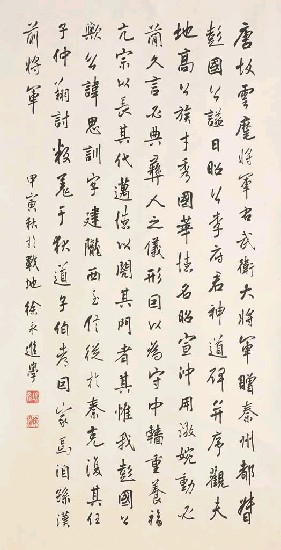 唐故雲麾將軍右武衛大將軍贈秦州都督
彭國公謚曰昭公李府君神道碑并序觀夫
地高公族才秀國華德名昭宣沖用微婉動必
簡久言必典彝人之儀形固以為守中轄重養福
亢宗以長其代邁德以閱其門者其惟我彭國公
歟公諱思訓字建隴西至信徙於秦克復其任
子仲翔討叛羌于狄道子伯考因家焉洎孫漢
前將軍
甲寅秋於戰地徐永進學